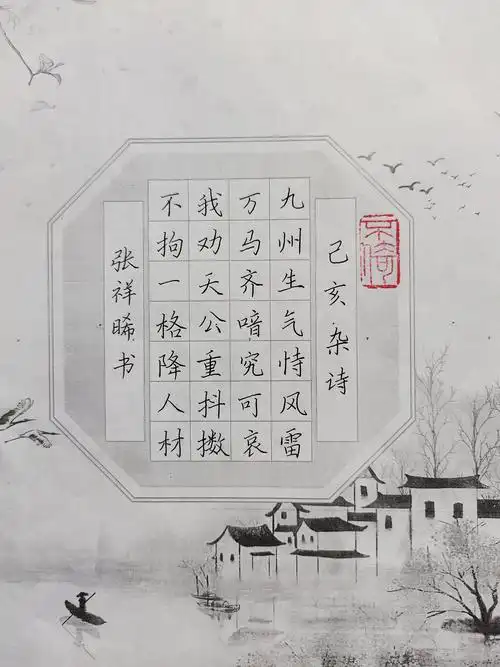 己亥杂诗
九州生气恃风雷
万马齐喑究可哀
我劝天公重抖擞
不拘一格降人材
张祥晞书